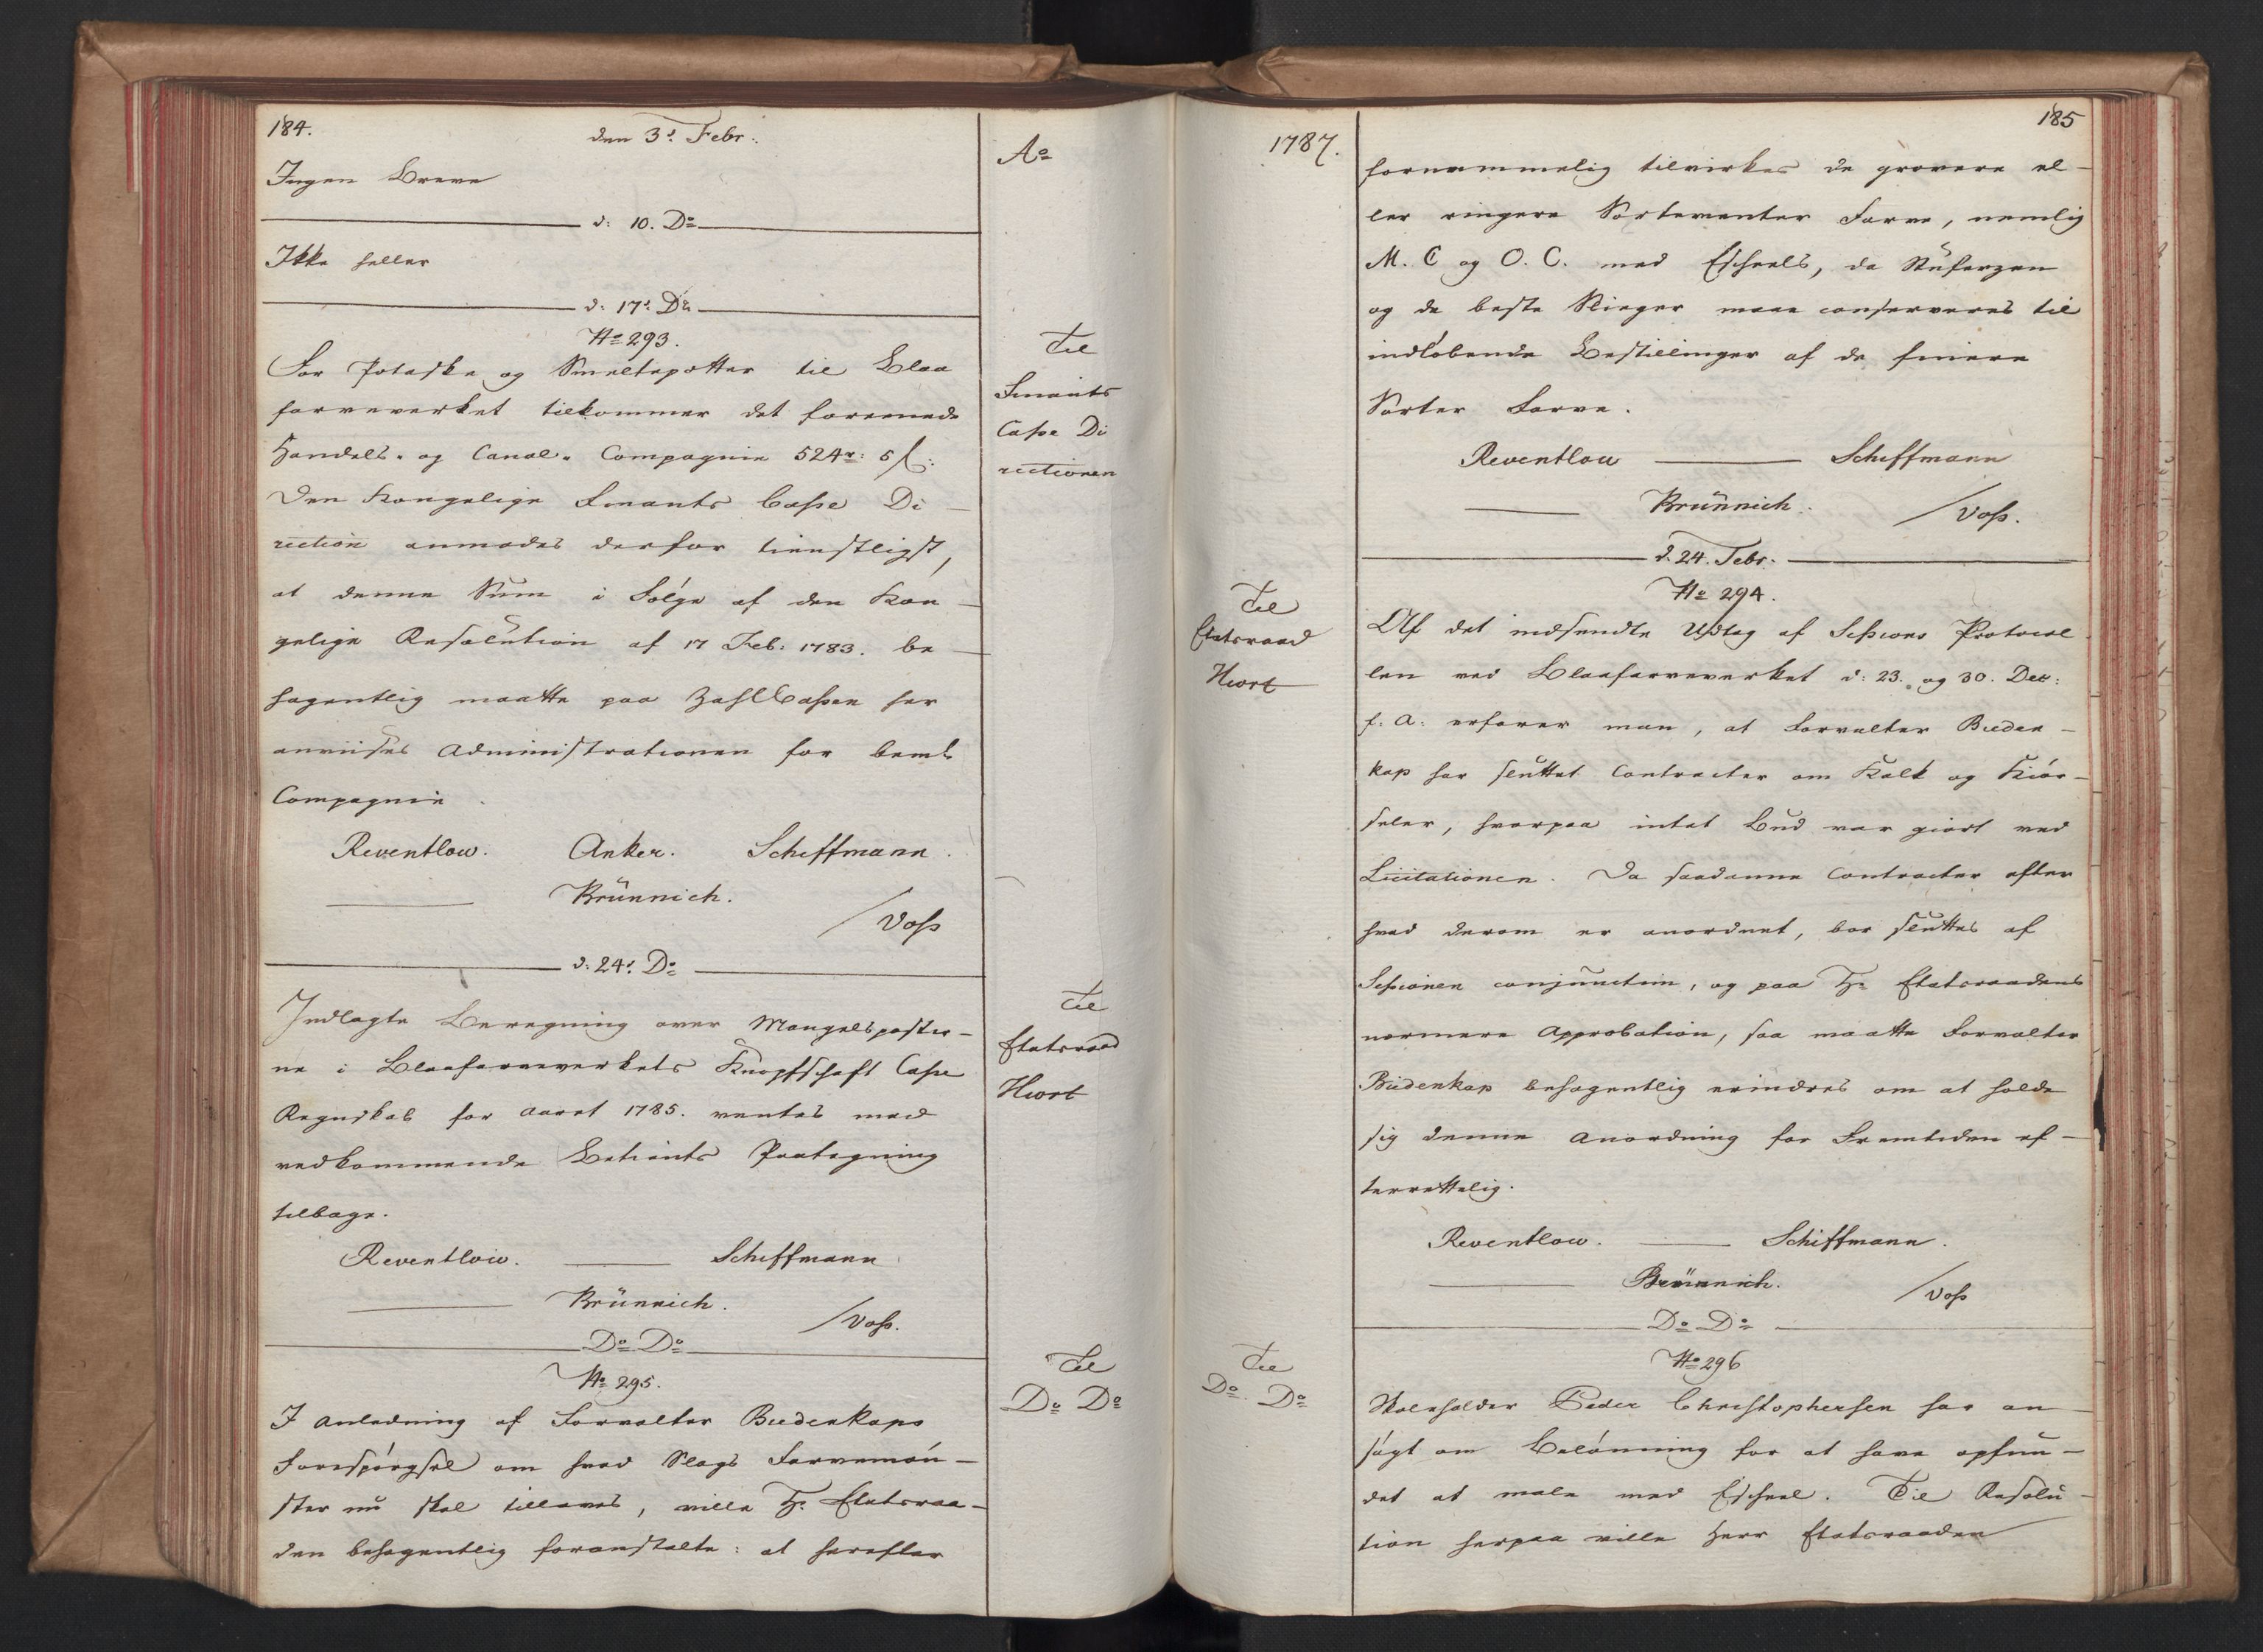 184.
den 3.' Febr:
Ao
Ingen Breve
d: 10. Do
Ikke heller
d: 17.' Do
No 293.
Til
Finants
Casse Di
rectionen
For Potaske og Smeltepotter til Blaa
farveverket tilkommer det foreenede
Handels- og Canal- Compagnie 524 r: 5 ſ:
Den Kongelige Finants Casse Di-
rection anmodes derfor tienstligst,
at denne Sum i Følge af den Kon-
gelige Resolution af 17 Feb: 1783. be-
hagentlig maatte paa Zahlkassen her
anviises Administrationen for bemte
Compagnie.
Reventlow. Anker. Schiffmann.
Brünnich.
/Voss
d: 24.' Do
Til
Etatsraad
Hiort
Indlagte Beregning over Mangelsposter-
ne i Blaafarveverkets Knapschaft Casse
Regnskab for Aaret 1785. ventes med
vedkommende Betients Paategning
tilbage.
Reventlow. Schiffmann
Brünnich.
/Voss.
Do Do
No 295.
Til
Do Do
I Anledning af Forvalter Büdenkaps
Forespørgsel om hvad Slags Farvemøn-
ster nu skal tillaves, ville Hr. Etatsraa-
den behagentlig foranstalte: at herefter
1787.
185
fornemmelig tilvirkes de grovere el-
ler ringere Sorteventer Farve, nemlig
M. C og O. C. med Eschels, da Stuferzen
og de beste Slieger maae conserveres til
indløbende Bestillinger af de finere
Sorter Farve.
Reventlow Schiffmann
Brünnich.
/Voss.
d. 24. Febr.
No 294.
Til
Etatsraad
Hiort
Af det indsendte Udtog af Sessions Protocol
len ved Blaafarveverket d: 23. og 30. Dec:
f: A: erfarer man, at Forvalter Büden-
kap har sluttet Contracter om Kalk og Kiør-
seler, hvorpaa intet Bud var giort ved
Licitationen. Da saadanne Contracter efter
hvad derom er anordnet, bør sluttes af
Sessionen conjunctim, og paa Hr. Etatsraadens
nærmere Approbation, saa maatte Forvalter
Büdenkap behagentlig erindres om at holde
sig denne Anordning for Fremtiden ef-
terrettelig.
Reventlow. Schiffmann.
Brünnich.
/Voss
Do Do
No 296
Til
Do. Do
Skoleholder Peder Christophersen har an
søgt om Belønning for at have opfun-
det at male med Eschel. Til Resolu-
tion herpaa ville Herr Etatsraaden